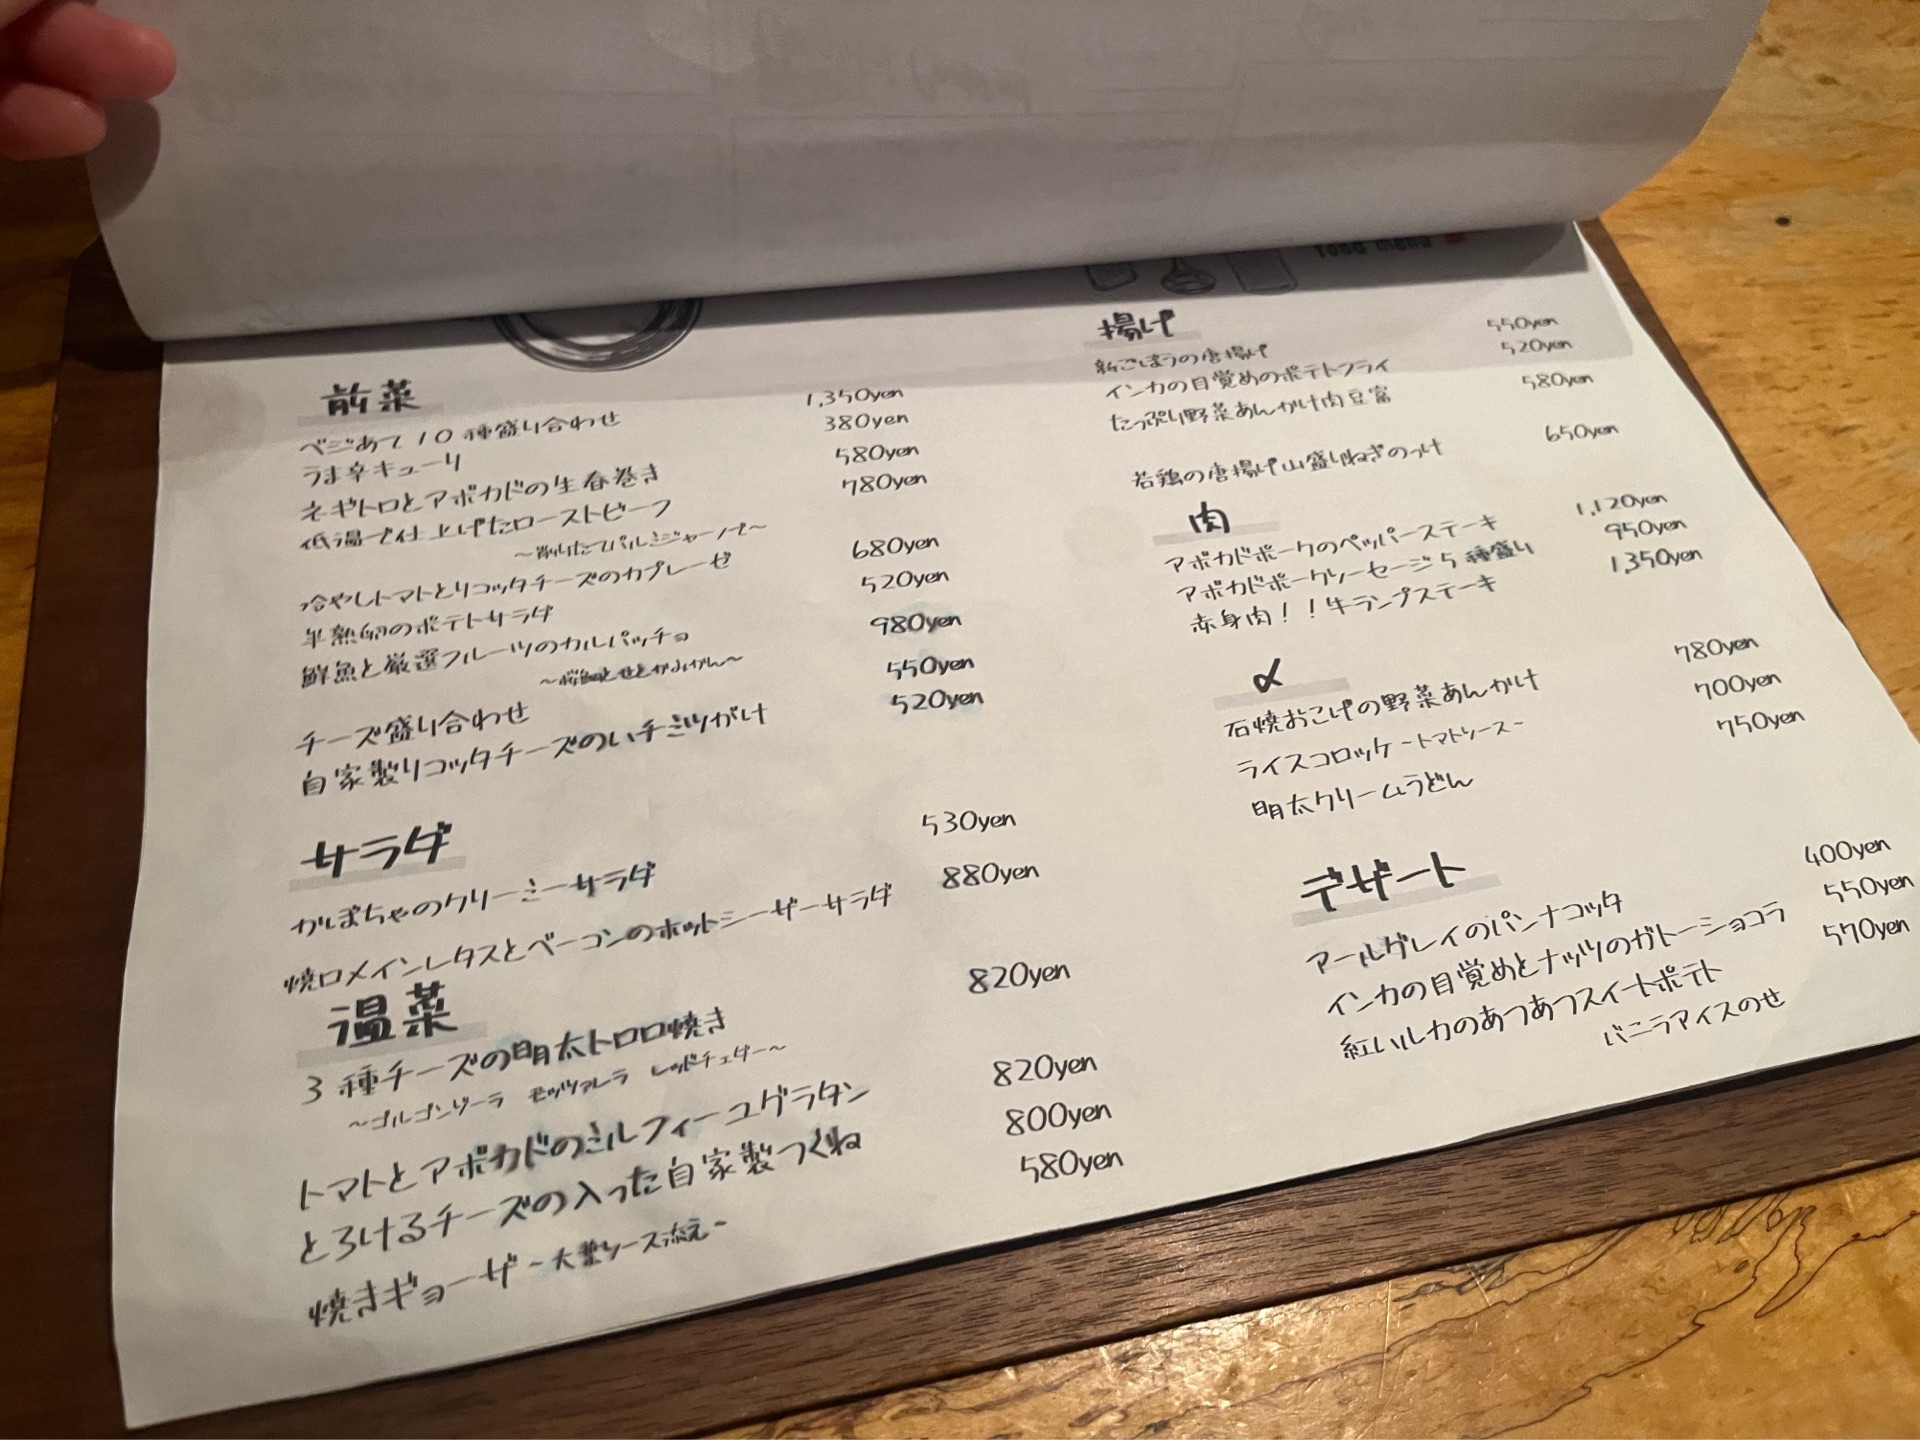 前菜
ベジあて10種盛り合わせ 1,350yen
うま辛キューリ 380yen
ネギトロとアボカドの生春巻き 580yen
低温で仕上げたローストビーフ 780yen
～削りたてパルミジャーノで～
冷やしトマトとリコッタチーズのカプレーゼ 680yen
半熟卵のポテトサラダ 520yen
鮮魚と厳選フルーツのカルパッチョ 980yen
チーズ盛り合わせ 550yen
自家製リコッタチーズのハチミツがけ 520yen
サラダ
かぼちゃのクリーミーサラダ 530yen
焼ロメインレタスとベーコンのホットシーザーサラダ 880yen
温菜
3種チーズの明太トロロ焼き 820yen
～ゴルゴンゾーラ モッツァレラ レッドチェダー～
トマトとアボカドのミルフィーユグラタン 820yen
とろけるチーズの入った自家製つくね 800yen
焼きギョーザ～大葉ソース添え～ 580yen
food menu
揚げ
新ごぼうの唐揚げ 550yen
インカの目覚めのポテトフライ 520yen
たっぷり野菜あんかけ肉豆富 580yen
若鶏の唐揚げ山盛りねぎのっけ 650yen
肉
アボカドポークのペッパーステーキ 1,120yen
アボカドポークソーセージ5種盛り 950yen
赤身肉！！牛ランプステーキ 1,350yen
〆
石焼おこげの野菜あんかけ 780yen
ライスコロッケ～トマトソース～ 700yen
明太クリームうどん 750yen
デザート
アールグレイのパンナコッタ 400yen
インカの目覚めとナッツのガトーショコラ 550yen
紅ハルカのあつあつスイートポテト 570yen
バニラアイスのせ